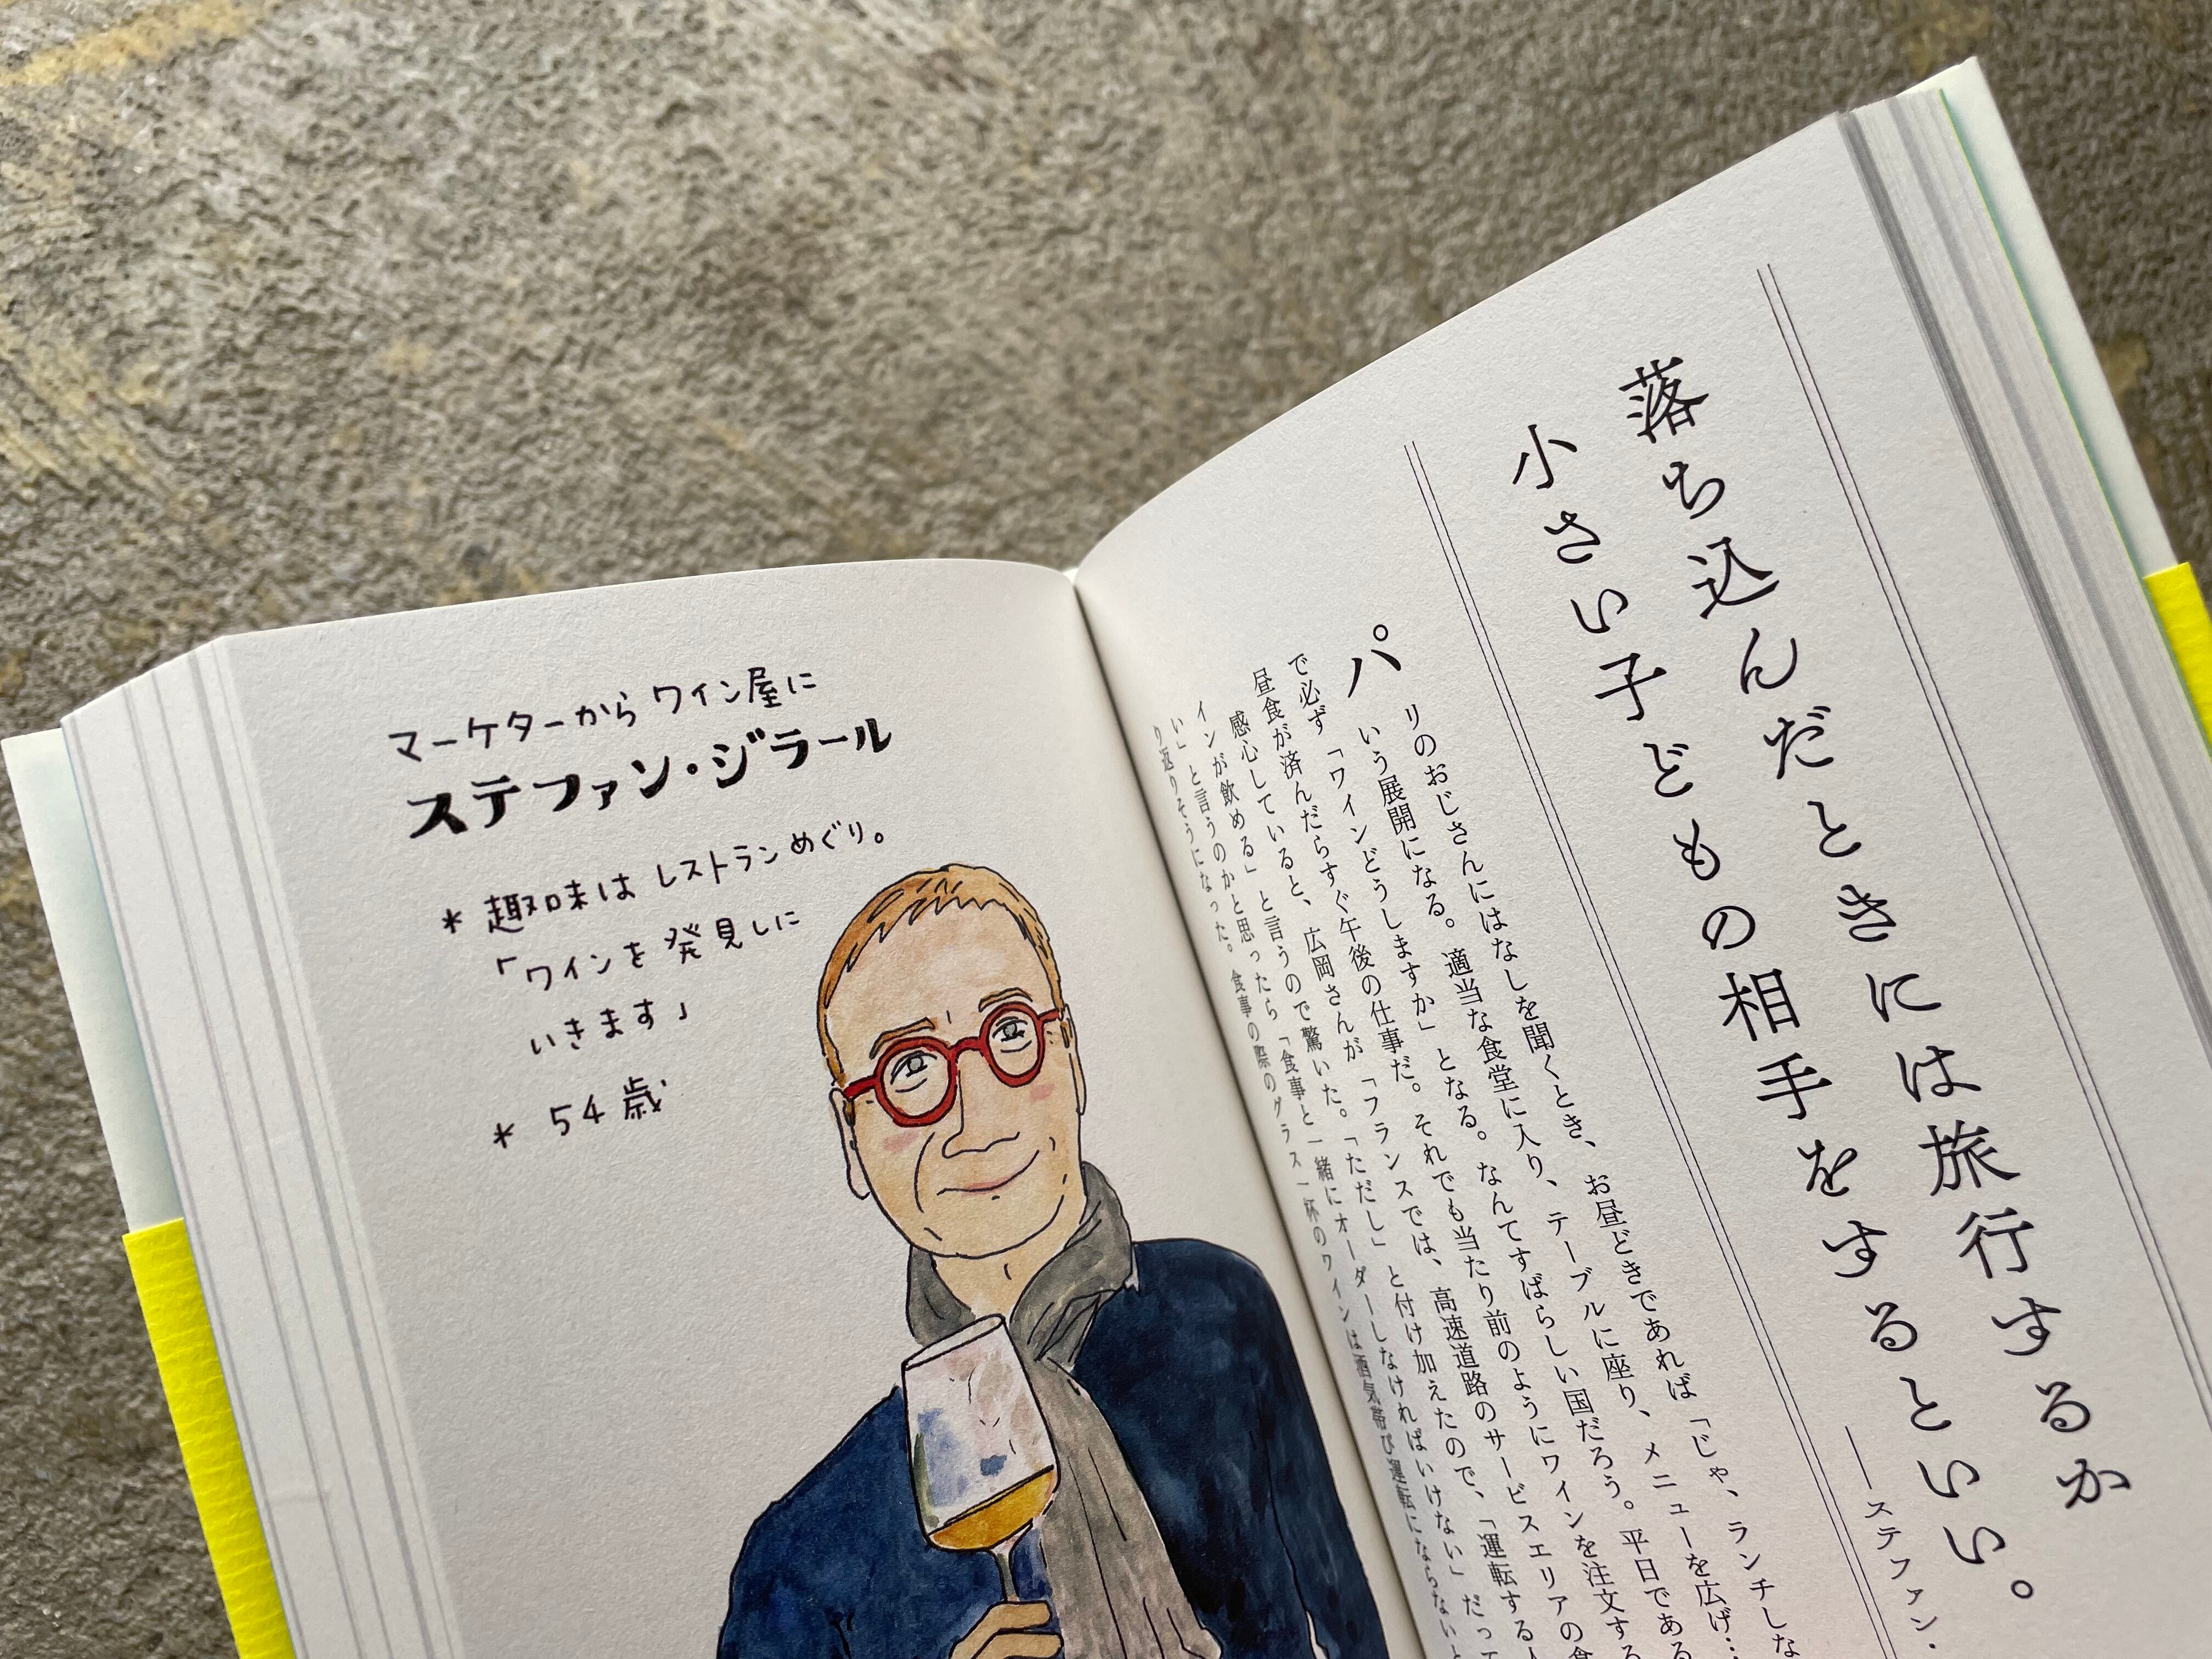 マーケターからワイン屋に
ステファン・ジラール
* 趣味はレストランめぐり。
「ワインを発見しに
いきます」
* 54歳
落ち込んだときには旅行するか
小さい子どもの相手をするといい。
——ステファン・
パリのおじさんにはなしを聞くとき、お昼どきであれば「じゃ、ランチしな
いう展開になる。適当な食堂に入り、テーブルに座り、メニューを広げ…
で必ず「ワインどうしますか」となる。なんてすばらしい国だろう。平日である
昼食が済んだらすぐ午後の仕事だ。それでも当たり前のようにワインを注文する
感心していると、広岡さんが「フランスでは、高速道路のサービスエリアの食
インが飲める」と言うので驚いた。「ただし」と付け加えたので、「運転する人
い」と言うのかと思ったら「食事と一緒にオーダーしなければいけない」だって
り返りそうになった。食事の際のグラス一杯のワインは酒気帯び運転にならないと